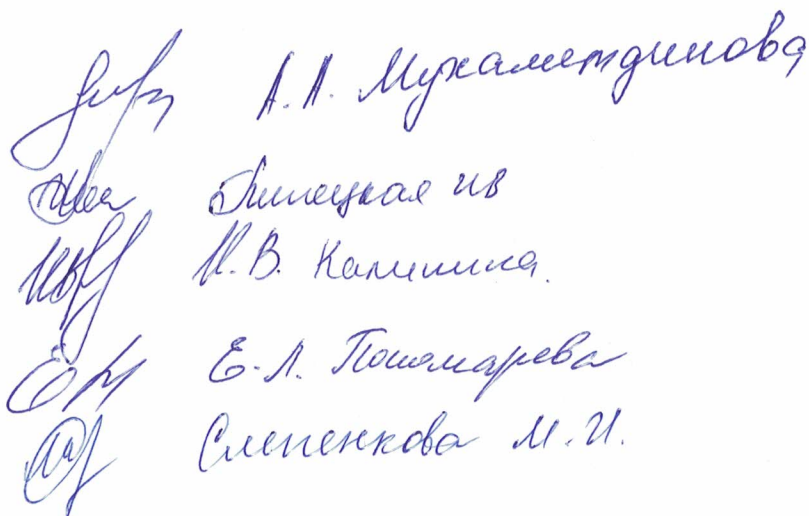 А.А. Мухаметдинова
ИВ
И.В. Калинина.
Е.Л. Пономарева
Слепенкова М.И.